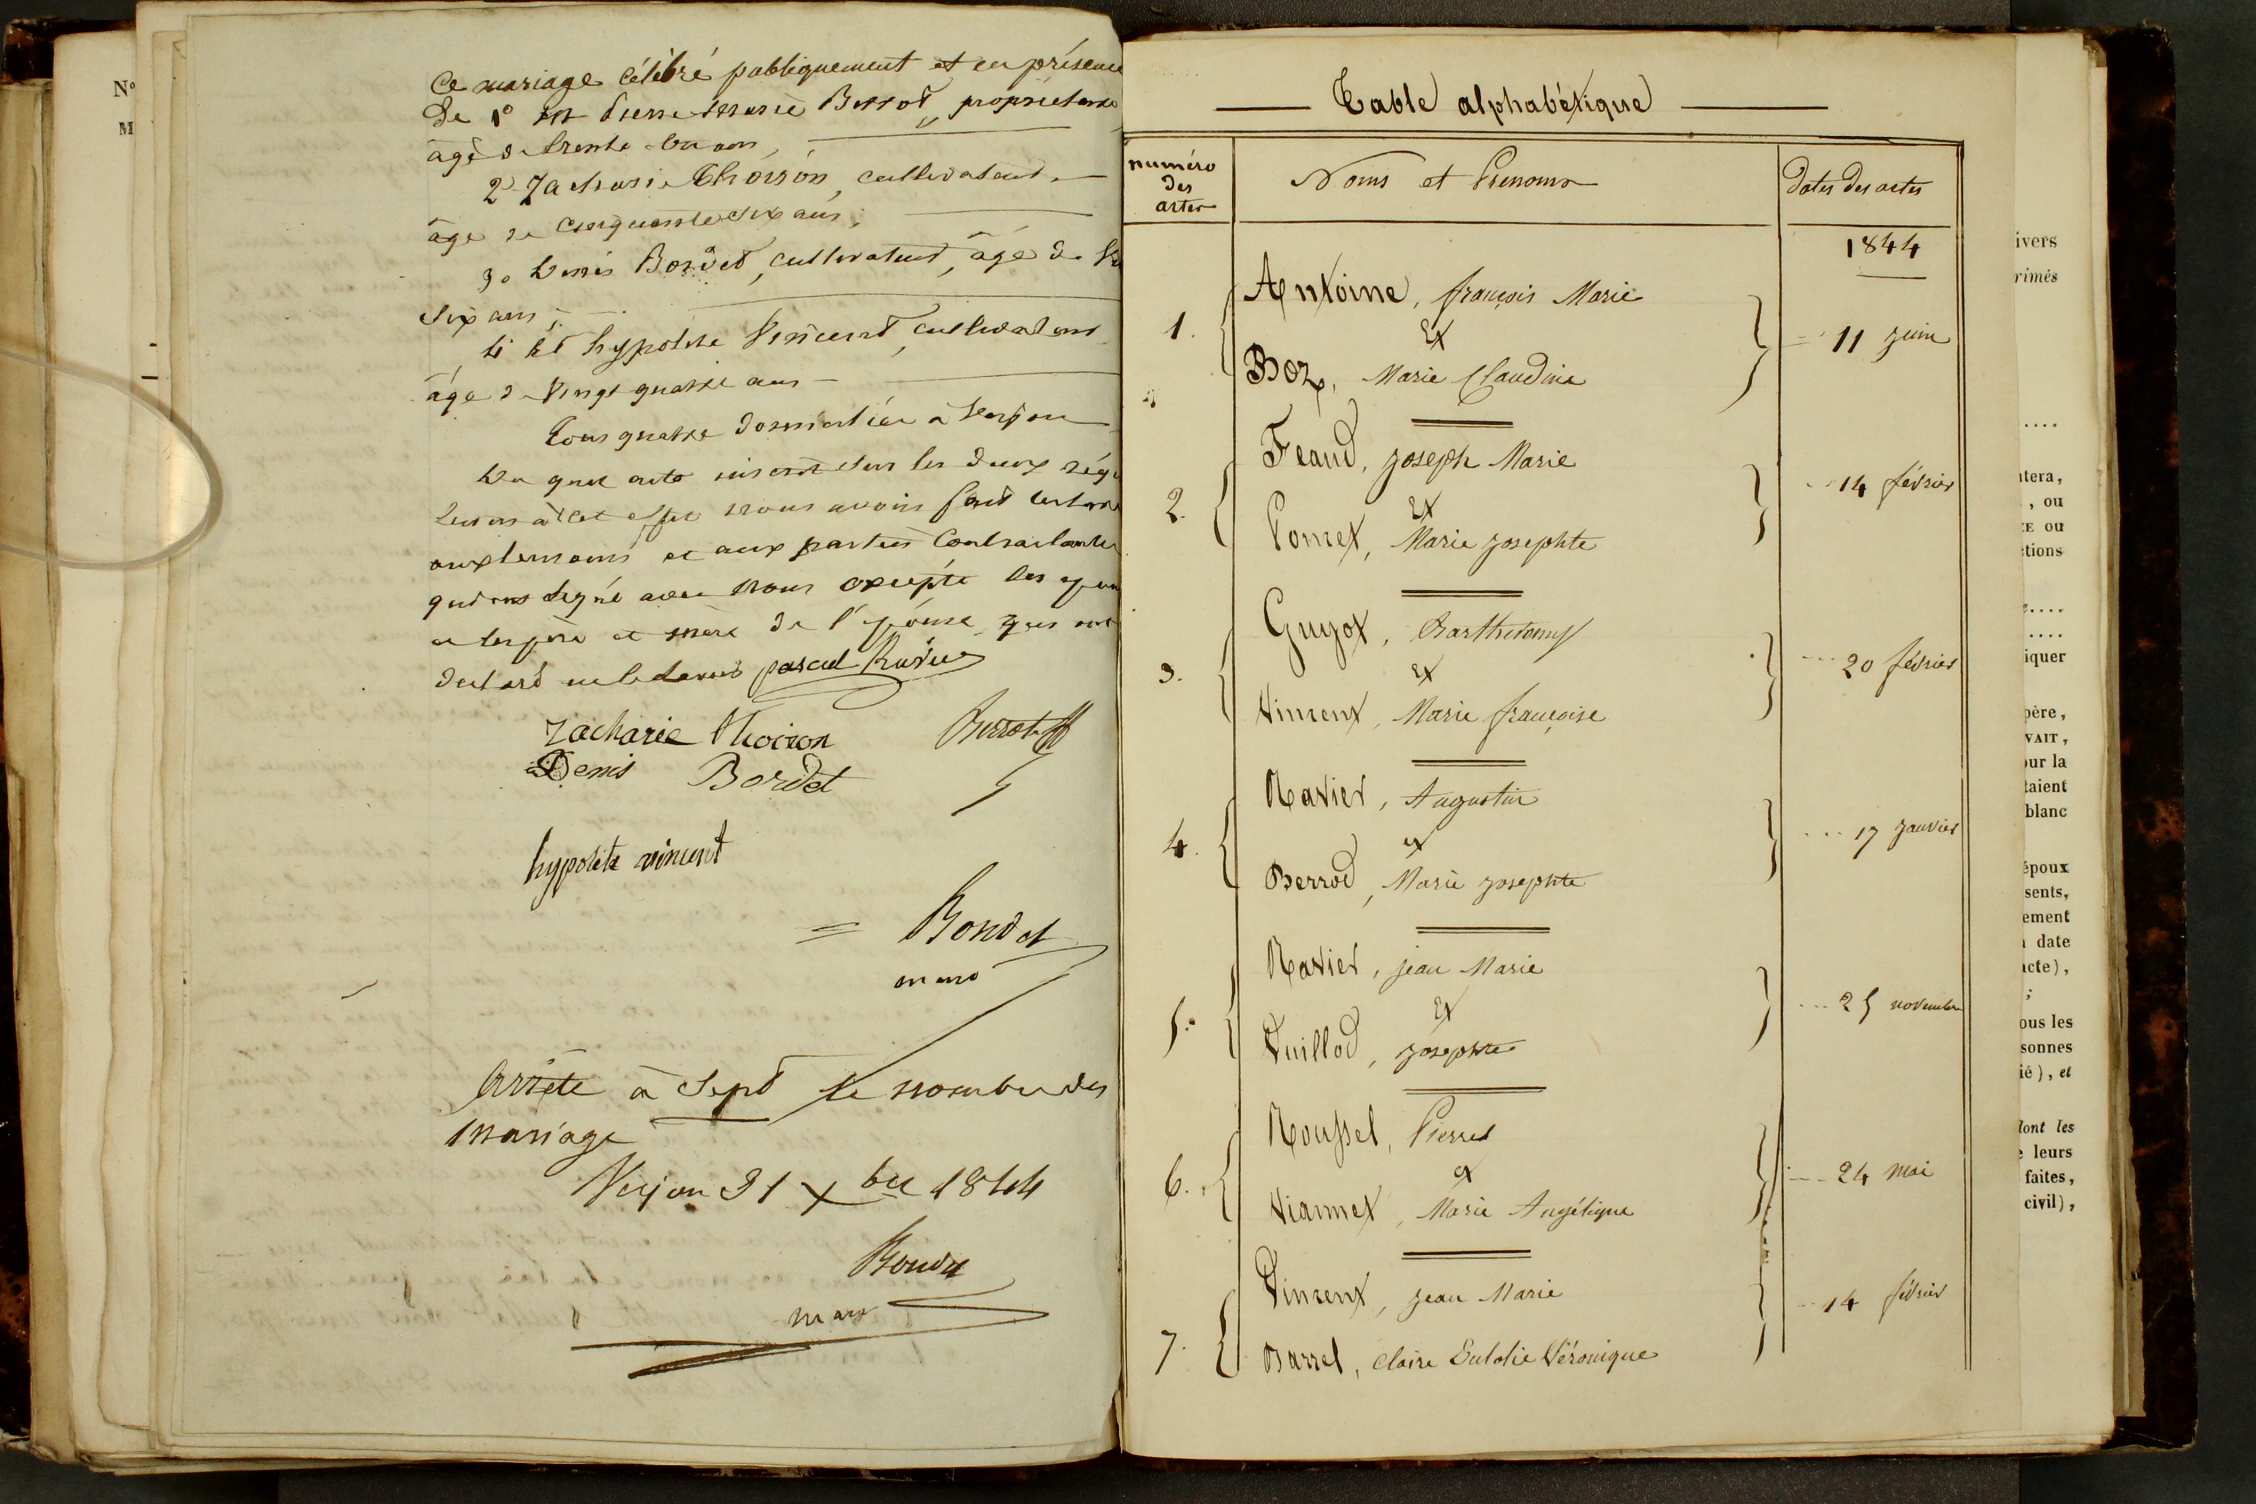 Ce mariage célébré publiquement et en présence
de 1° Mr Pierre Marie Berrod, propriétaire
âgé de trente
2° Zacharie Thoiron, cultivateur
âgé de cinquante six ans,
3° Denis Bordet, cultivateur, âgé de
six ans,
4° Et hypolite Vincent, cultivateur
âgé de Vingt quatre ans
Tous quatre domiciliés à Verjon
Du quel acte inscrit sur les deux
à cet effet nous avons fait lecture
aux témoins et aux parties Contractantes
qui ont signé avec nous excepté les
et les père et mère de l'épouse qui ont
déclaré ne le savoir pascal Ravier
Zacharie Thoiron Berrod
Denis Bordet
hypolite vincent
= Bondet
maire
Arrêté à Sept le nombre des
Mariage
Verjon 31 Xbre 1844
Bondet
maire
Table alphabétique
numéro des actes
Noms et Prenoms
dates des actes
1844
Antoine, françois Marie
1. Et 11 juin
Boz, Marie Claudine
Feaud, joseph Marie
2. Et 14 février
Pomet, Marie josephte
Guyot, Barthelemy
3. Et 20 février
Vincent, Marie françoise
Ravier, Augustin
4. et 17 janvier
Berrod, Marie josephte
Ravier, jean Marie
5. Et 25 novembre
Vuillod, josephte
Roussel, Pierre
6. et 24 mai
Viannet, Marie Angélique
Vincent, jean Marie
7. 14 février
Barrel, Claire Eulolie Véronique
N°
M
ivers
rimés
....
tera,
, ou
ZE ou
ctions
....
....
iquer
père,
VAIT,
our la
taient
blanc
époux
sents,
ement
date
acte),
;
ous les
sonnes
ié), et
dont les
leurs
faites,
civil),